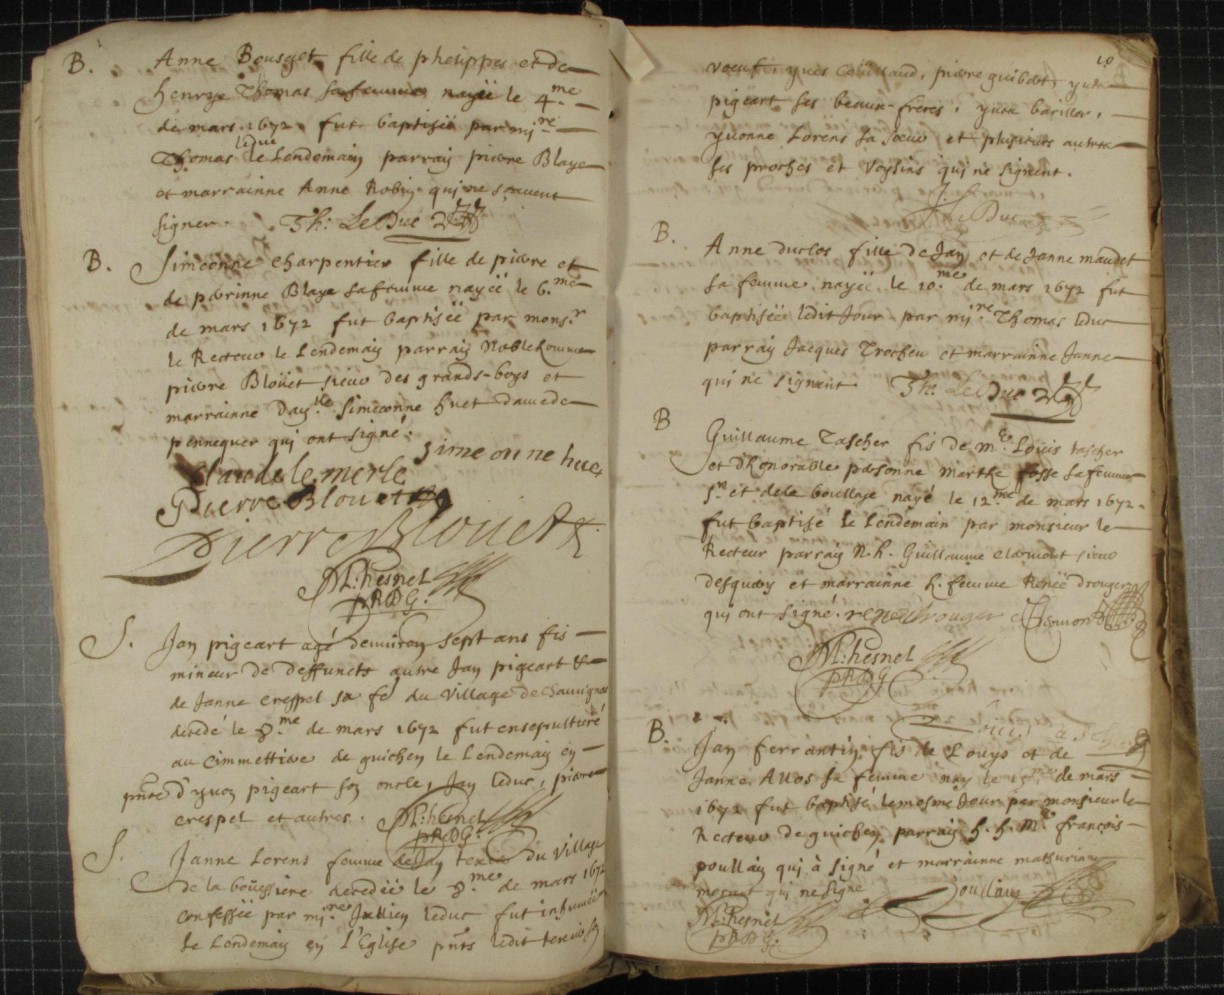 B. Anne fille de phelippes et de
henrye Thomas sa femme nayë le 4.me
de mars 1672 fut baptiséë par mi.re
Thomas leduc le Lendemain parrain pierre Blaye
et marrainne Anne Robin qui ne sçavent
signer. Th: LeDuc
B. Simeonne charpentier fille de pierre et
de perrinne Blaye sa femme nayëë le 6.me
de mars 1672 fut baptiséë par mons.r
le Recteur le Lendemain parrain Noble homme
pierre Bloüet sieur des grands-boys et
marrainne Simeonne huet dame de
pennequer qui ont signé.
simeonne huet
Claude le merle
Pierre Blouet
Pierre Blouet
M: hesnel
pRDG.
S. Jan pigeart agé denviron sept ans fis
mineur de deffuncts autre Jan pigeart &
de Janne crespel sa fe du village de
decedé le 8.me de mars 1672 fut ensepulturé
au cimmettiere de guichen le Lendemain en
pnce d'yvon pigeart son oncle, Jan leduc, pierre
crespel et autres.
M: hesnel
pRDG.
S. Janne Lorens femme de Jan du village
de la boüexiere decedëë le 8.me de mars 1672
confesséë par mi.re Jullien leduc fut inhuméë
le Lendemain en l'Eglise pnts ledit son
10
yves pierre yves
pigeart ses beaux-freres,
yvonne Lorens sa soeur et plusieurs autres
ses proches et voysins qui ne signent.
LeDuc
B. Anne duclos fille de Jan et de Janne maudet
sa femme nayëë le 10.me de mars 1672 fut
baptiséë ledit Jour par mi.re Thomas leduc
parrain Jacques Trocheu et marrainne Janne
qui ne signent Th: LeDuc
B Guillaume Tascher fis de m.e Loüis tascher
et d'honorable personne Marthe fosse sa femme
s.r et de la boullaye nayé le 12.me de mars 1672.
fut baptisé le Lendemain par monsieur le
Recteur parrain N. h. Guillaume sieur
et marrainne h. femme Renëë drouger
qui ont signé. renee drouger
M: hesnel
pRDG
B. Jan ferrantin fis de Louys et de
Janne Allos sa femme nay le de mars
1672 fut baptisé le mesme Jour par monsieur le
Recteur de guichen parrain h. h. M.e françois
poullain qui à signé et marrainne mathurinne
qui ne signe Poullain
M: hesnel
pRDG.